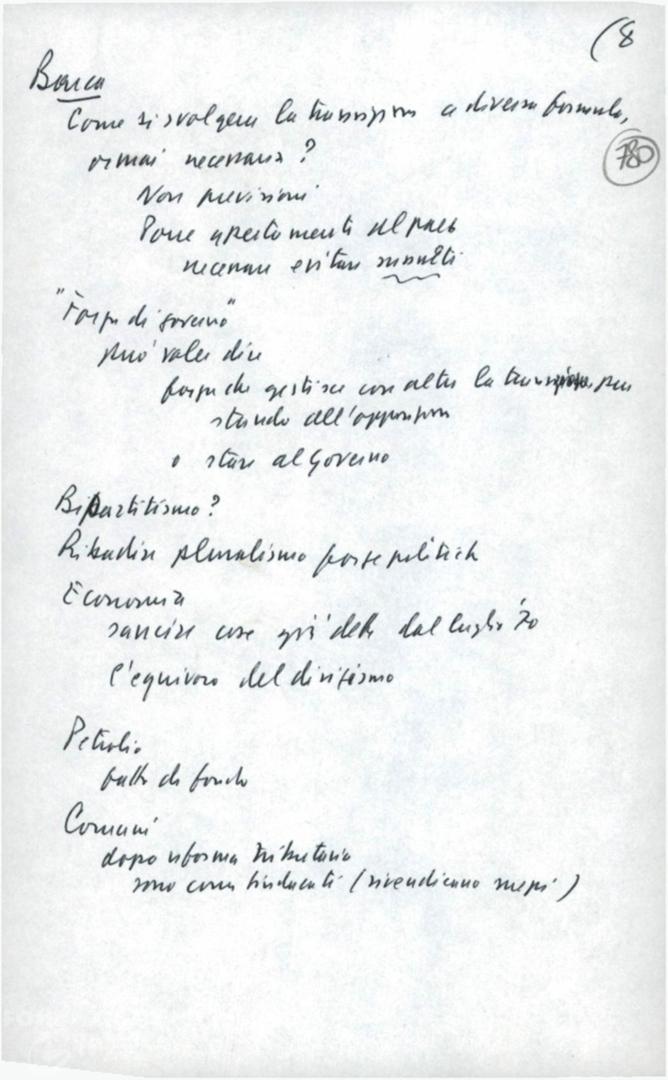 (8
Barca
Come si svolgera la transizione a diversa formula,
780
ormai necessaria?
Non previsioni
Porre apertamente al paese
necessare evitare sussulti
"Forze di governo"
può voler dire
forze che gestisce con altri la transizione pur
stando all'opposizione
o stare al Governo
Bipartitismo?
Ribadire pluralismo forze politiche
Economia
sancire cose già dette dal luglio '70
l'equivoco del dirigismo
Petrolio
fatto di fondo
Comuni
dopo riforma tributaria
sono come sindacati (rivendicano mezzi)